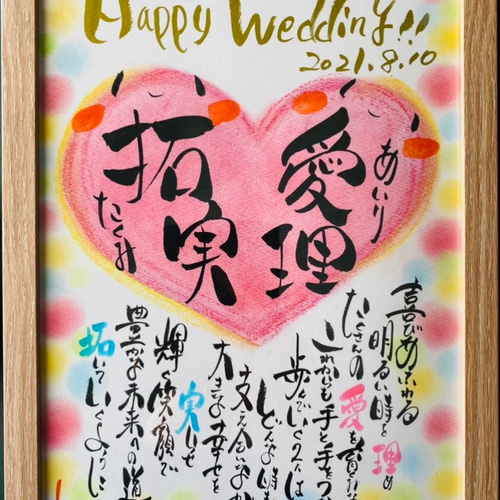 Happy Wedding!!
2021.8.10
愛理
あいり
拓実
たくみ
喜びあふれる
明るい時を理め
たくさんの愛を育みな
これからも手と手をつ
歩んでいく二人は
どんな時も
支え合いなが
大きな幸せを
実らせ
輝く笑顔で
豊かな未来への道
拓いていくように